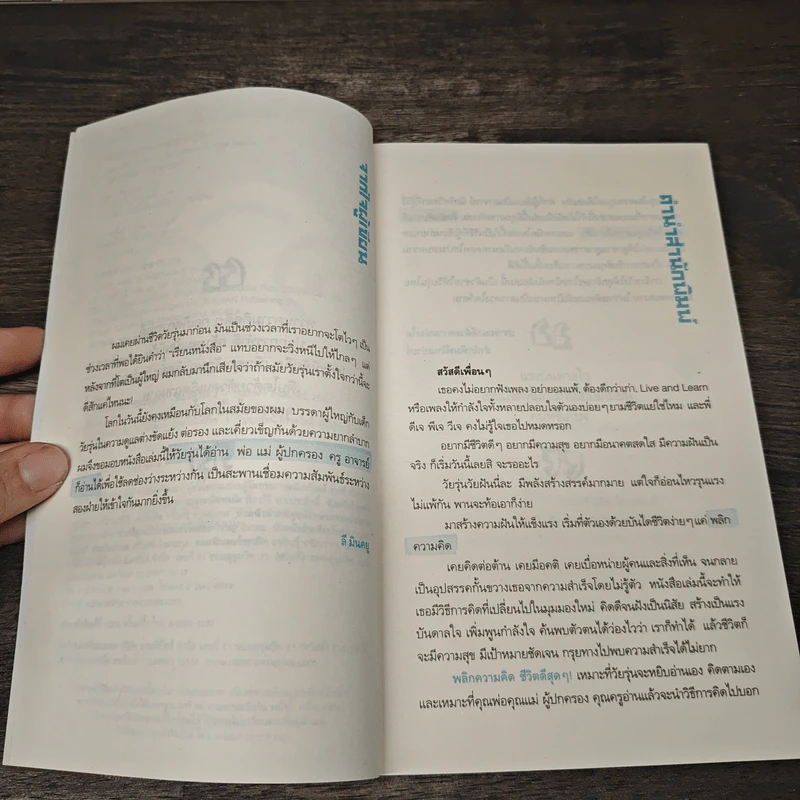 จากใจผู้เขียน
ผมเคยผ่านชีวิตวัยรุ่นมาก่อน มันเป็นช่วงเวลาที่เราอยากจะโตไวๆ เป็น
ช่วงเวลาที่พอได้ยินคำว่า "เรียนหนังสือ" แทบอยากจะวิ่งหนีไปให้ไกลๆ แต่
หลังจากที่โตเป็นผู้ใหญ่ ผมกลับมานึกเสียใจว่าถ้าสมัยวัยรุ่นเราตั้งใจกว่านี้จะ
ดีสักแค่ไหนนะ!
โลกในวันนี้ยังคงเหมือนกับโลกในสมัยของผม บรรดาผู้ใหญ่กับเด็ก
วัยรุ่นในความดูแลต่างขัดแย้ง ต่อรอง และเคี่ยวเข็ญกันด้วยความยากลำบาก
ผมจึงขอมอบหนังสือเล่มนี้ให้วัยรุ่นได้อ่าน พ่อ แม่ ผู้ปกครอง ครู อาจารย์
ก็อ่านได้เพื่อใช้ลดช่องว่างระหว่างกัน เป็นสะพานเชื่อมความสัมพันธ์ระหว่าง
สองฝ่ายให้เข้าใจกันมากยิ่งขึ้น
ลี มินคยู
คำนำสำนักพิมพ์
สวัสดีเพื่อนๆ
เธอคงไม่อยากฟังเพลง อย่ายอมแพ้, ต้องดีกว่าเก่า, Live and Learn
หรือเพลงให้กำลังใจทั้งหลายปลอบใจตัวเองบ่อยๆ ยามชีวิตแย่ใช่ไหม และพี่
ดีเจ พีเจ วีเจ คงไม่รู้ใจเธอไปหมดหรอก
อยากมีชีวิตดีๆ อยากมีความสุข อยากมีอนาคตสดใส มีความฝันเป็น
จริง ก็เริ่มวันนี้เลยสิ จะรออะไร
วัยรุ่นวัยฝันนี่ละ มีพลังสร้างสรรค์มากมาย แต่ใจก็อ่อนไหวรุนแรง
ไม่แพ้กัน พานจะท้อเอาก็ง่าย
มาสร้างความฝันให้แข็งแรง เริ่มที่ตัวเองด้วยบันไดชีวิตง่ายๆ แค่ พลิก
ความคิด
เคยคิดต่อต้าน เคยมีอคติ เคยเบื่อหน่ายผู้คนและสิ่งที่เห็น จนกลาย
เป็นอุปสรรคกั้นขวางเธอจากความสำเร็จโดยไม่รู้ตัว หนังสือเล่มนี้จะทำให้
เธอมีวิธีการคิดที่เปลี่ยนไปในมุมมองใหม่ คิดดีจนฝังเป็นนิสัย สร้างเป็นแรง
บันดาลใจ เพิ่มพูนกำลังใจ ค้นพบตัวตนได้ว่องไวว่า เราก็ทำได้ แล้วชีวิตก็
จะมีความสุข มีเป้าหมายชัดเจน กรุยทางไปพบความสำเร็จได้ไม่ยาก
พลิกความคิด ชีวิตดีสุดๆ! เหมาะที่วัยรุ่นจะหยิบอ่านเอง คิดตามเอง
และเหมาะที่คุณพ่อคุณแม่ ผู้ปกครอง คุณครูอ่านแล้วจะนำวิธีการคิดไปบอก